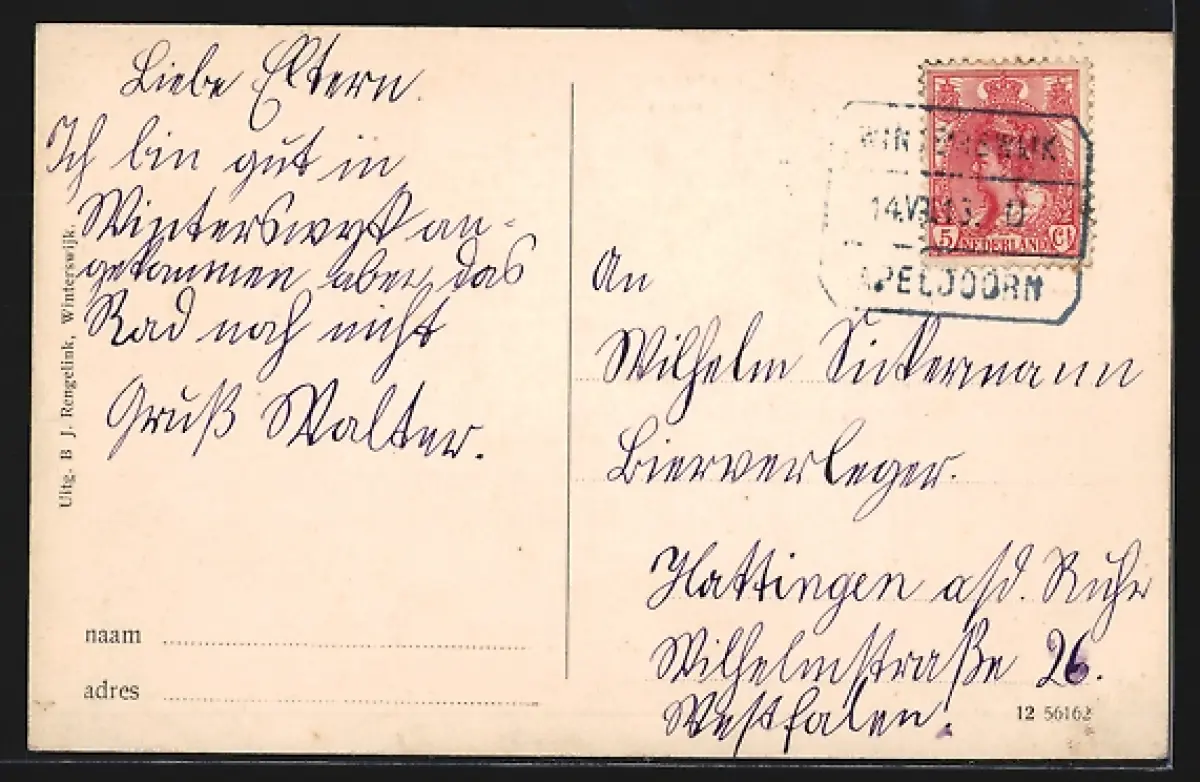 Liebe Eltern.
Ich bin gut in
Winterswyk an-
gekommen aber das
Rad noch nicht
Gruß Walter.
Uitg. B J. Rengelink, Winterswijk.
naam
adres
WINTERSWIJK
APELDOORN
5 NEDERLAND Ct
An
Wilhelm
Bierverleger.
Hattingen a/d. Ruhr
Wilhelmstraße 26.
Westfalen.
12 56162